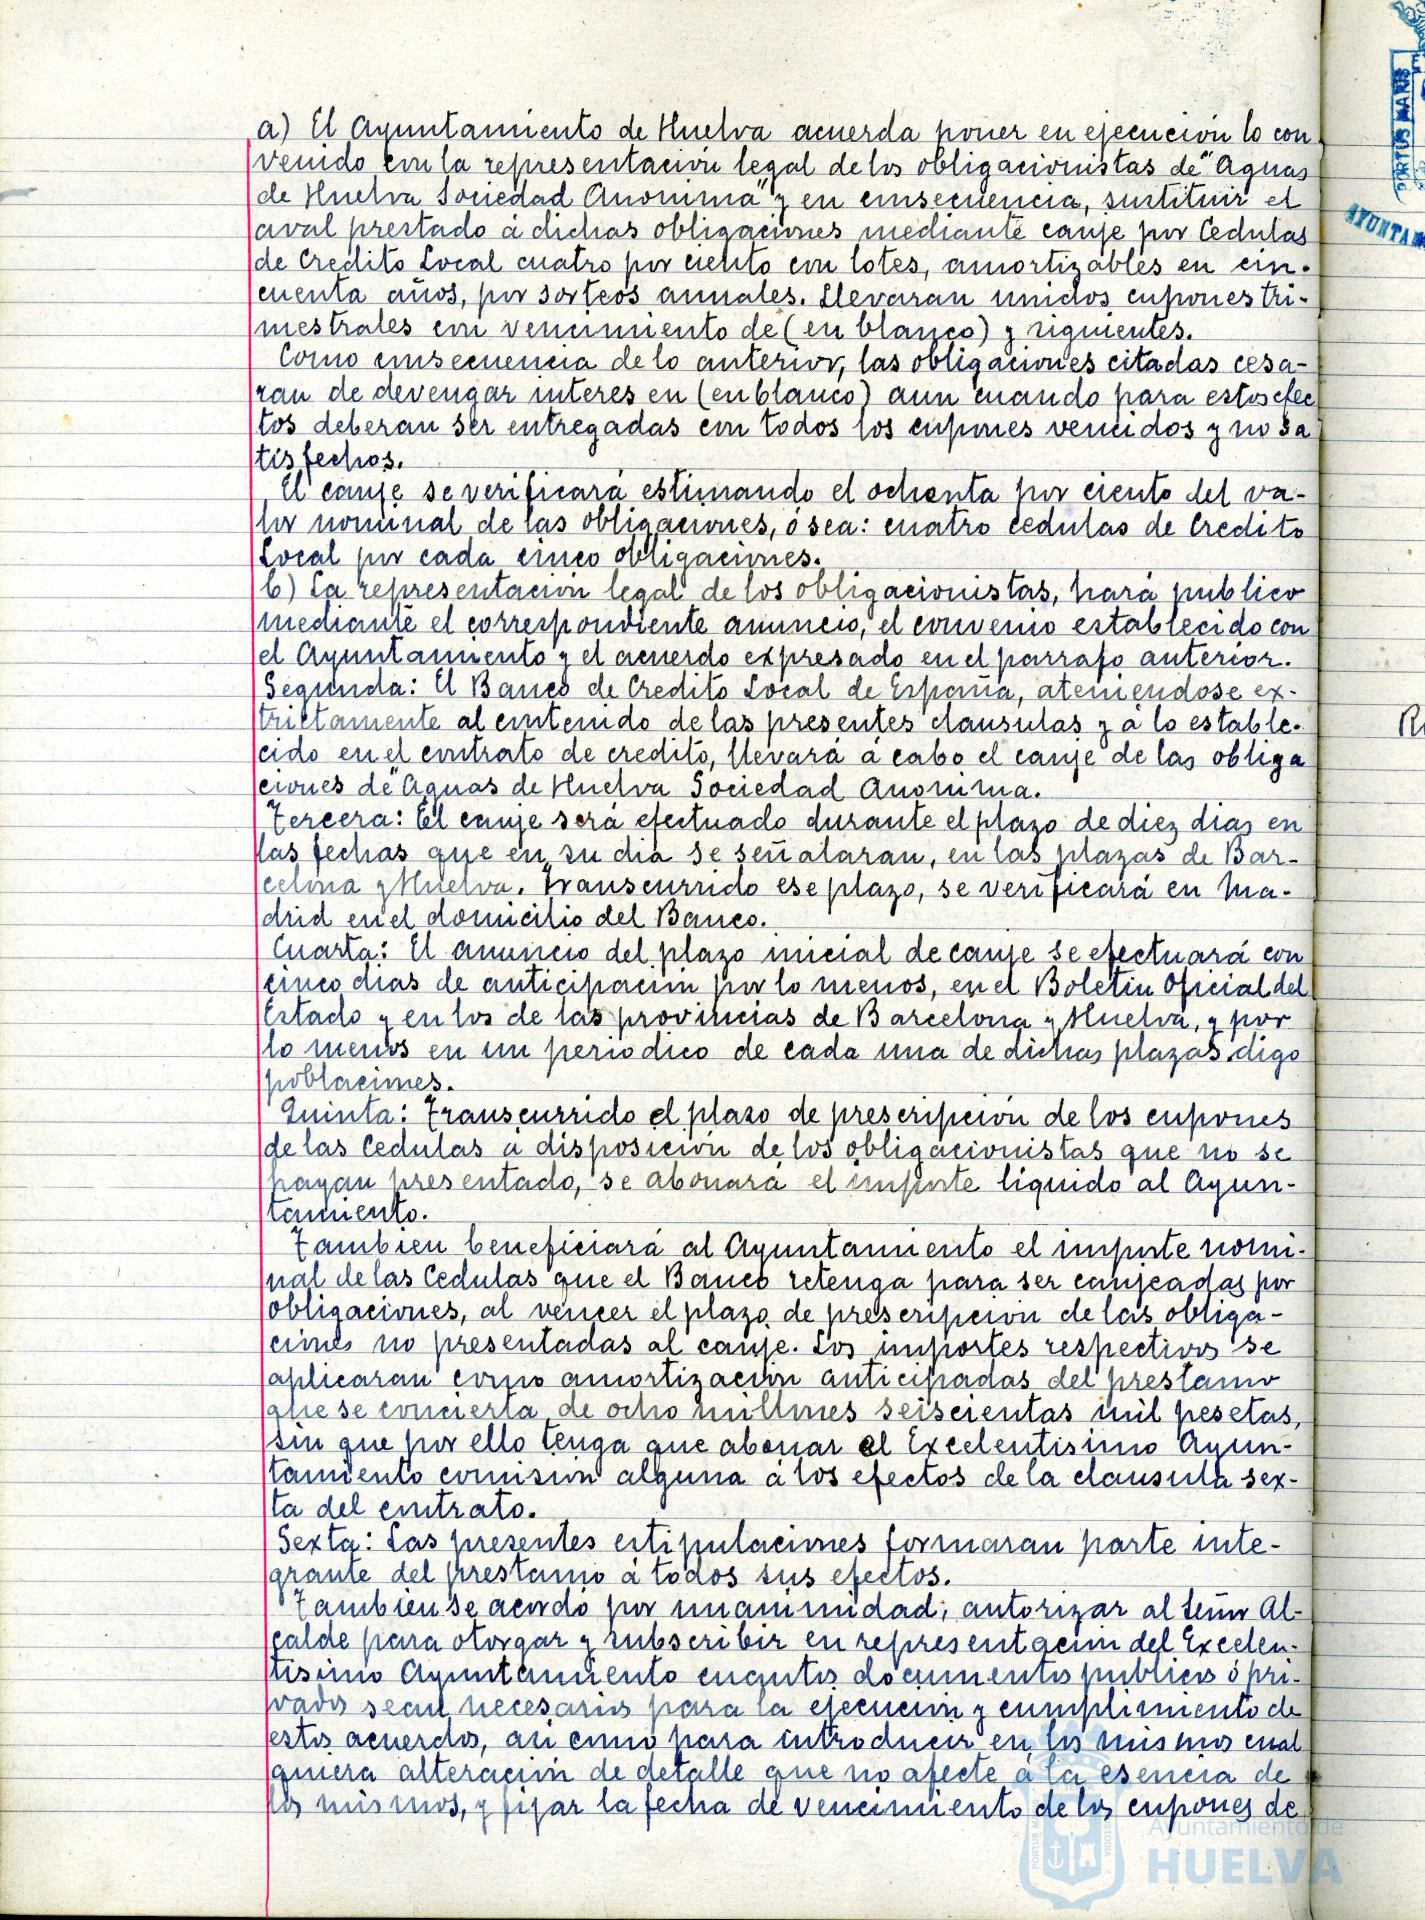 a) El Ayuntamiento de Huelva acuerda poner en ejecución lo con
venido con la representación legal de los obligacionistas de "Aguas
de Huelva Sociedad Anonima" y en consecuencia, sustituir el
aval prestado á dichas obligaciones mediante canje por Cedulas
de Credito Local cuatro por ciento con lotes, amortizables en cin-
cuenta años, por sorteos anuales. Llevaran unidos cupones tri-
mestrales con vencimiento de (en blanco) y siguientes.
Como consecuencia de lo anterior, las obligaciones citadas cesa-
ran de devengar interes en (en blanco) aun cuando para estos efec
tos deberan ser entregadas con todos los cupones vencidos y no sa
tisfechos.
El canje se verificará estimando el ochenta por ciento del va-
lor nominal de las obligaciones, ó sea: cuatro cedulas de Credito
Local por cada cinco obligaciones.
b) La representación legal de los obligacionistas, hará publico
mediante el correspondiente anuncio, el convenio establecido con
el Ayuntamiento y el acuerdo expresado en el parrafo anterior.
Segunda: El Banco de Credito Local de España, ateniendose ex-
trictamente al contenido de las presentes clausulas y á lo estable-
cido en el contrato de credito, llevará á cabo el canje de las obliga
ciones de "Aguas de Huelva Sociedad Anonima.
Tercera: El canje será efectuado durante el plazo de diez dias en
las fechas que en su dia se señalaran, en las plazas de Bar-
celona y Huelva. Transcurrido ese plazo, se verificará en Ma-
drid en el domicilio del Banco.
Cuarta: El anuncio del plazo inicial de canje se efectuará con
cinco dias de anticipación por lo menos, en el Boletin Oficial del
Estado y en los de las provincias de Barcelona y Huelva, y por
lo menos en un periodico de cada una de dichas plazas digo
poblaciones.
Quinta: Transcurrido el plazo de prescripción de los cupones
de las Cedulas á disposición de los obligacionistas que no se
hayan presentado, se abonará el importe liquido al Ayun-
tamiento.
Tambien beneficiará al Ayuntamiento el importe nomi-
nal de las Cedulas que el Banco retenga para ser canjeadas por
obligaciones, al vencer el plazo de prescripción de las obliga-
ciones no presentadas al canje. Los importes respectivos se
aplicaran como amortización anticipadas del prestamo
que se concierta de ocho millones seiscientas mil pesetas,
sin que por ello tenga que abonar el Excelentisimo Ayun-
tamiento comisión alguna á los efectos de la clausula sex-
ta del contrato.
Sexta: Las presentes estipulaciones formaran parte inte-
grante del prestamo á todos sus efectos.
Tambien se acordó por unanimidad, autorizar al Señor Al-
calde para otorgar y subscribir en representación del Excelen-
tisimo Ayuntamiento cuantos documentos publicos ó pri-
vados sean necesarios para la ejecución y cumplimiento de
estos acuerdos, asi como para introducir en los mismos cual
quiera alteración de detalle que no afecte á la esencia de
los mismos, y fijar la fecha de vencimiento de los cupones de
PORTUS MARIS
Ayuntamiento de
HUELVA